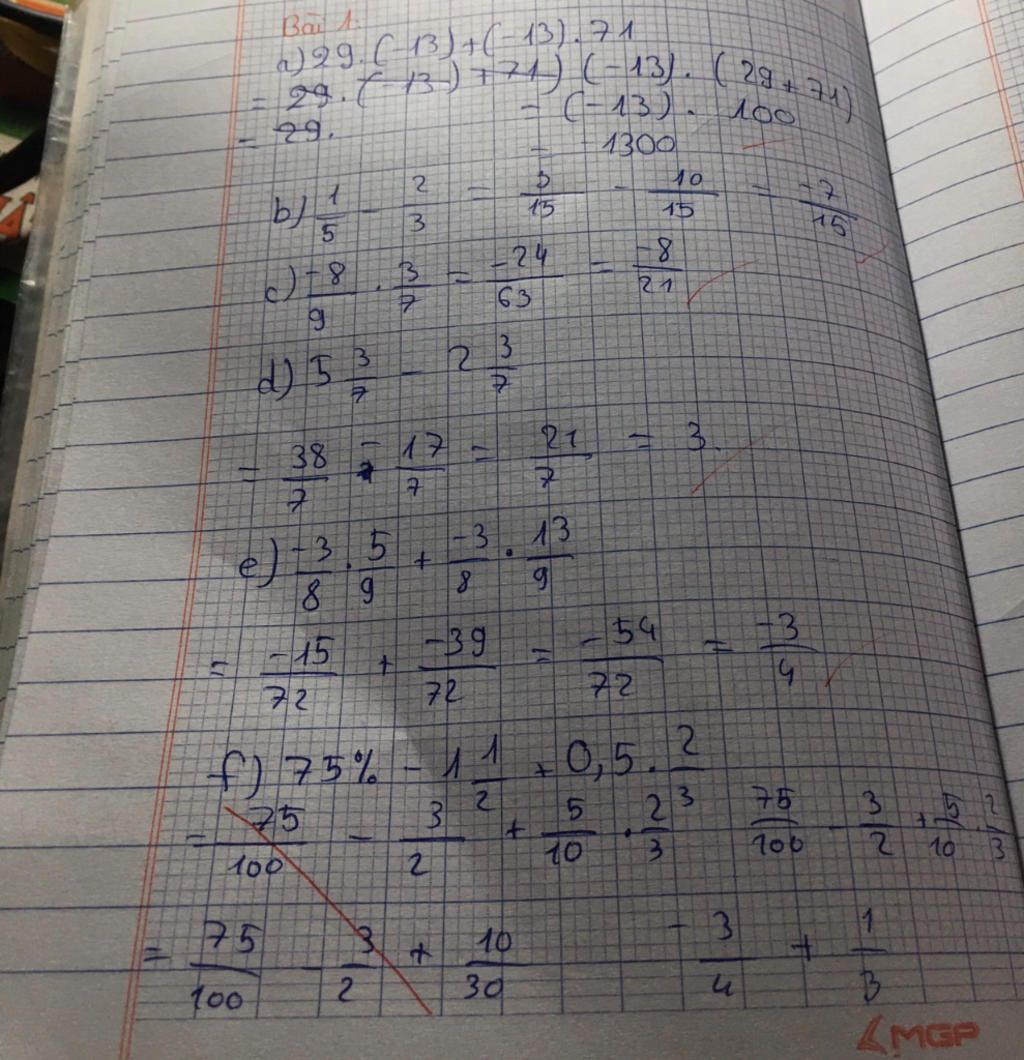 Bài 1.
a) 29.(-13)+(-13).71
= 29.(-13)+71) (-13).(29+71)
= 29. = (-13). 100
= -1300
b) 1/5 - 2/3 = 3/15 - 10/15 = -7/15
c) -8/9 . 3/7 = -24/63 = -8/21
d) 5 3/7 - 2 3/7
= 38/7 - 17/7 = 21/7 = 3.
e) -3/8 . 5/9 + -3/8 . 13/9
= -15/72 + -39/72 = -54/72 = -3/4
f) 75% - 1 1/2 + 0,5 . 2/3
= 75/100 - 3/2 + 5/10 . 2/3 75/100 - 3/2 + 5/10 . 2/3
= 75/100 - 3/2 + 10/30 - 3/4 + 1/3
MGP